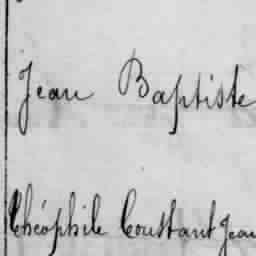 Jean Baptiste
Théophile Constant Jean